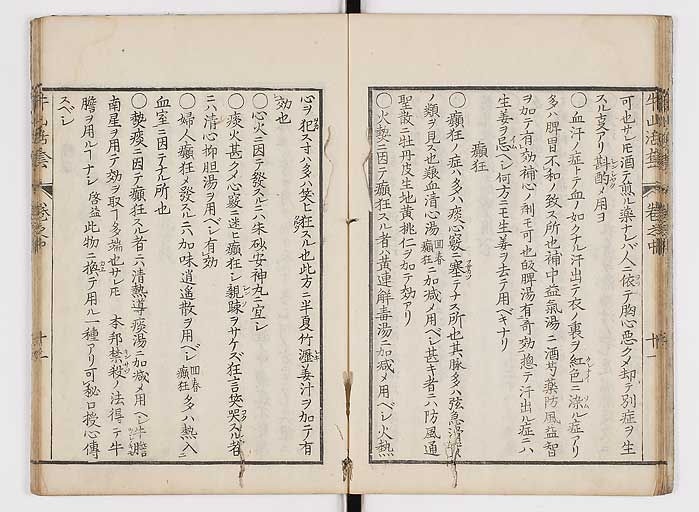 可也サレ𪜈酒ニテ煎ル藥ナレバ人ニ依テ胸心悪クメ却テ別症ヲ生
スル亥アリ斟酌メ用ヨ
〇血汗ノ症トテ血ノ如クナル汗出テ衣ノ裏ヲ紅色ニ染ル症アリ
多ハ脾胃不和ノ致ス所也補中益氣湯ニ酒芍藥防風益智
ヲ加テ有効補心ノ剤モ可也皈脾湯有奇効揔テ汗出ル症ニハ
生姜ヲ忌ベシ何方ニモ生姜ヲ去テ用ベキナリ
癲狂
〇癲狂ノ症ハ多ハ痰心竅ニ塞テナス所也其脉多ハ弦急滑
ノ類ヲ見ス也養血清心湯回春癲狂ニ加減メ用ベシ甚キ者ニハ防風通
聖散ニ牡丹皮生地黄桃仁ヲ加テ効アリ
〇火𤍠ニ因テ癲狂スル者ハ黄連解毒湯ニ加減メ用ベシ火熱
心ヲ犯寸ハ多ハ笑ヒ狂スル也此方ニ半夏竹瀝姜汁ヲ加テ有
効也
〇心火ニ因テ發スルニハ朱砂安神丸ニ宜シ
〇痰火甚クメ心竅ニ迷ヒ癲狂シ親疎ヲサケズ狂言笑哭スル者
ニハ清心抑胆湯ヲ用ベシ有効
〇婦人癲狂メ發スルニハ加味逍遥散ヲ用ベシ回春癲狂多ハ熱入
血室ニ因テナル所也
〇𤍠痰ニ因テ癲狂スル者ニハ清熱導痰湯ニ加減メ用ベシ牛膽
南星ヲ用テ効ヲ取ヿ多端也サレ𪜈本邦禁殺ノ法得テ牛
膽ヲ用ルヿナシ啓益此物ニ換テ用ル一種アリ可秘口授心傳
スベシ
牛山活套 卷之中